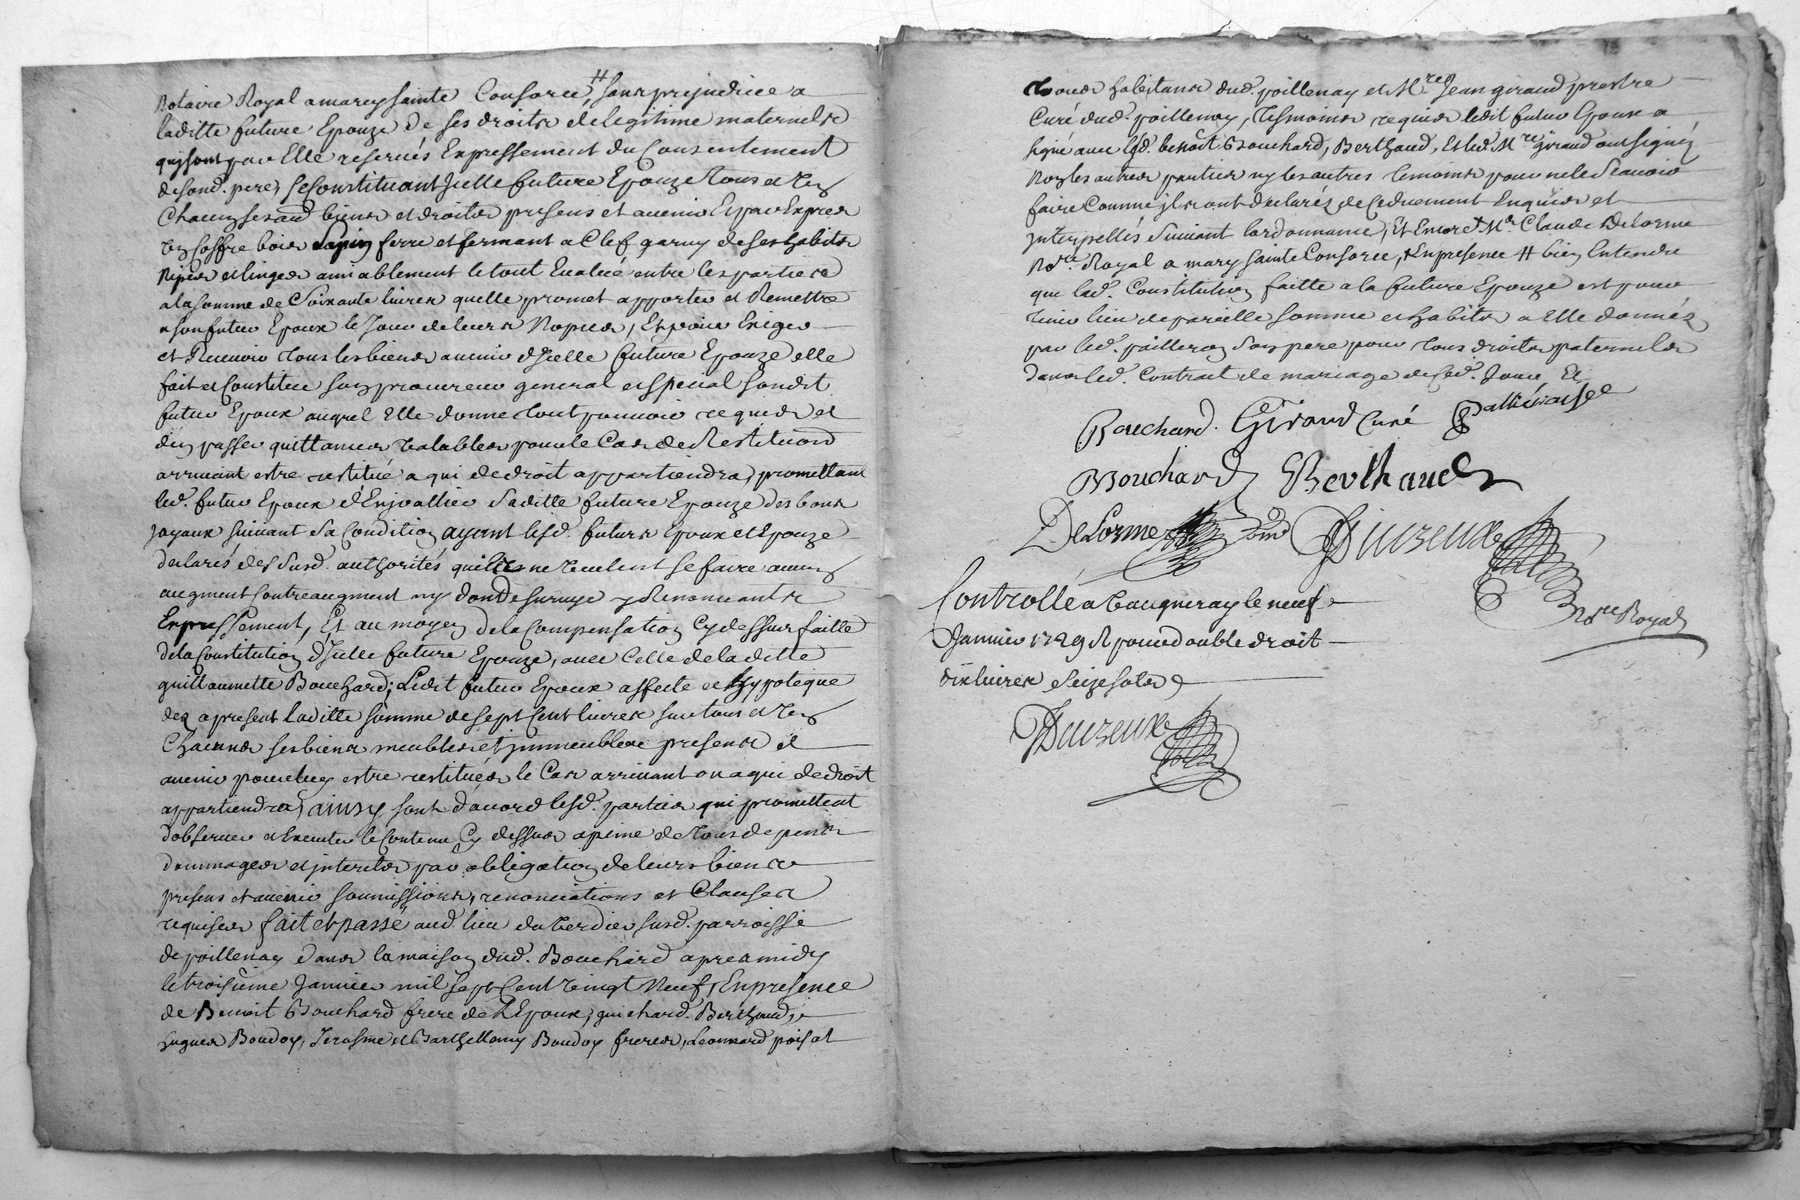 Notaire Royal a marcy sainte Consorce, # sans prejudice a
laditte future Epouze de ses droits de legitime maternelle
quy sont par Elle reservés Expressement du Consentement
de sond. pere, se constituant Icelle future Epouze tous et Un
Chacuns ses aud biens et droits presens et avenir Et par Exprès
Un coffre bois sapin ferré et fermant a Clef garny de ses habits
Nipes et linges amiablement le tout Evalué entre les parties
a la somme de Soixante livres quelle promet apporter et Remettre
a son futur Epoux le Jour de leurs Nopces, Et pour Exiger
et Recevoir tous les biens avenir d'Icelle future Epouze elle
fait et Constitue son procureur general et special sondit
futur Epoux auquel Elle donne tout pouvoir requis et
d'en passer quittances Valables pour le Cas de Restitution
arrivant estre restitué a qui de droit appartiendra, promettant
led. futur Epoux d'Enjoallier saditte future Epouze des bons
Joyaux suivant sa Condition ayant lesd. futurs Epoux et Epouze
declarés des susd. authorités quils ne veulent se faire aucun
augment Contreaugment ny don de survye y Renonceant
Expressement, Et au moyen de la Compensation Cy dessus faitte
de la Constitution d'Icelle future Epouze, avec Celle de laditte
guillaumette Bouchard; Ledit futur Epoux affecte et hypoteque
des apresent laditte somme de sept Cent livres sur tous et Un
Chacuns ses biens meubles et immeubles presens et
avenir pour luy estre restituée le Cas arrivant ou a qui de droit
appartiendra, ainsy sont d'acord lesd. parties qui promettent
d'observer et Executer le Contenu Cy dessus a peine de tous depens
dommages et interets par obligation de leurs biens
presens et avenir soumissions, renonciations et Clauses
requises fait et passé aud. lieu du Verdier susd. parroisse
de poillenay dans la maison dud. Bouchard apres midy
le troisième Janvier mil sept Cent Vingt Neuf, En presence
de Benoit Bouchard frere de l'Epoux, guichard Berthaud,
hugues Boudoy, Jerosme et Barthellemy Boudoy freres, Leonnard poisat
tous habitans dud. poillenay et Mre Jean giraud prestre
Curé dud. poillenay, tesmoins requis ledit futur Epoux a
signé avec led. benoît Bouchard, Berthaud, et led. Mre giraud aux signés
Non les autres parties ny les autres temoins pour ne le Scavoir
faire Comme ils ont declarés de ce duement Enquis et
interpellés Suivant lordonnance, Et Encore Me. Claude Delorme
Nore. Royal a marcy sainte Consorce, En presence # bien Entendu
que lad. Constitution faitte a la future Epouze est pour
tenir lieu de pareille somme et habits a Elle donnés
par led. pailleron son pere pour tous droits paternels
dans led. Contract de mariage de Ced. Jour Et
Bouchard. Giraud Curé
Bouchard Berthaud
DeLorme
Controllé a Vaugneray le neuf
Janvier 1729 R pour double droit
dix livres Seize sols
Nore Royal